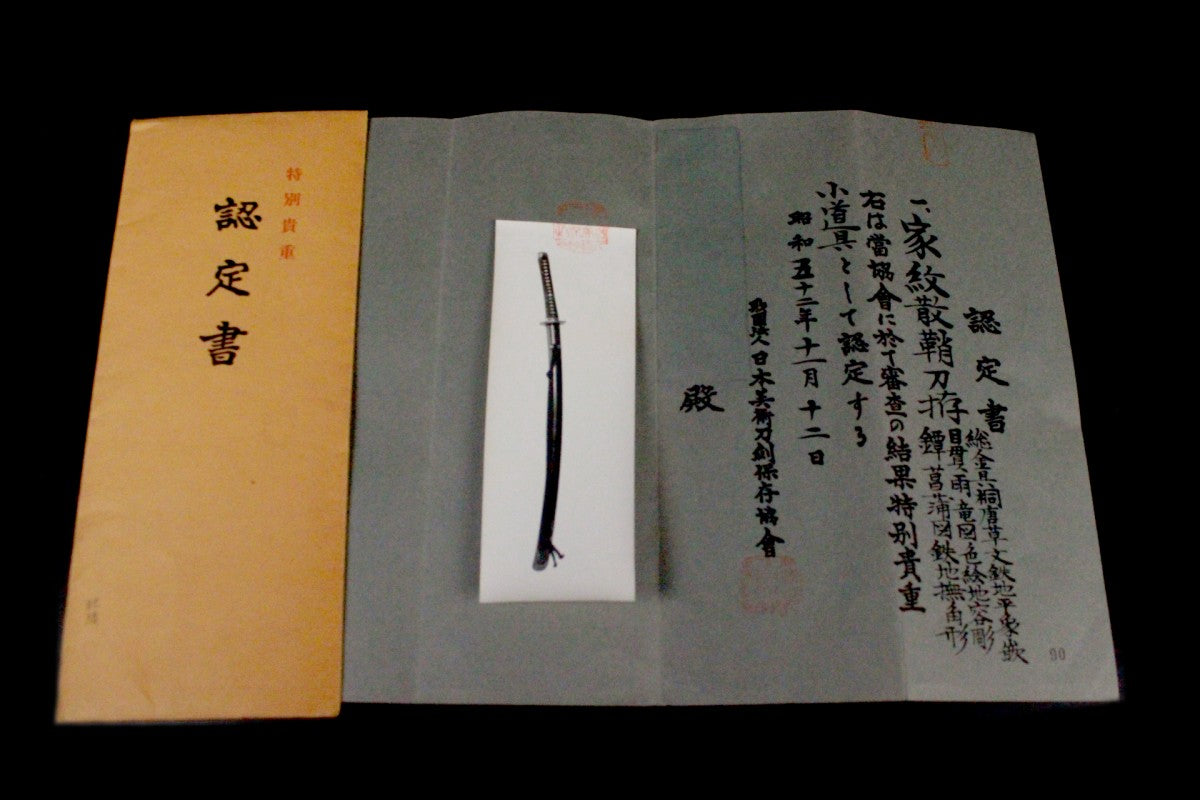 特別貴重
認定書
認定書
一、家紋散鞘刀拵
総金具桐唐草文鉄地平象嵌
目貫雨竜図色絵地容彫
鐔菖蒲図鉄地撫角形
右は當協會に於て審査の結果特別貴重
小道具として認定する
昭和五十二年十一月十二日
財團法人日本美術刀劍保存協會
殿
90